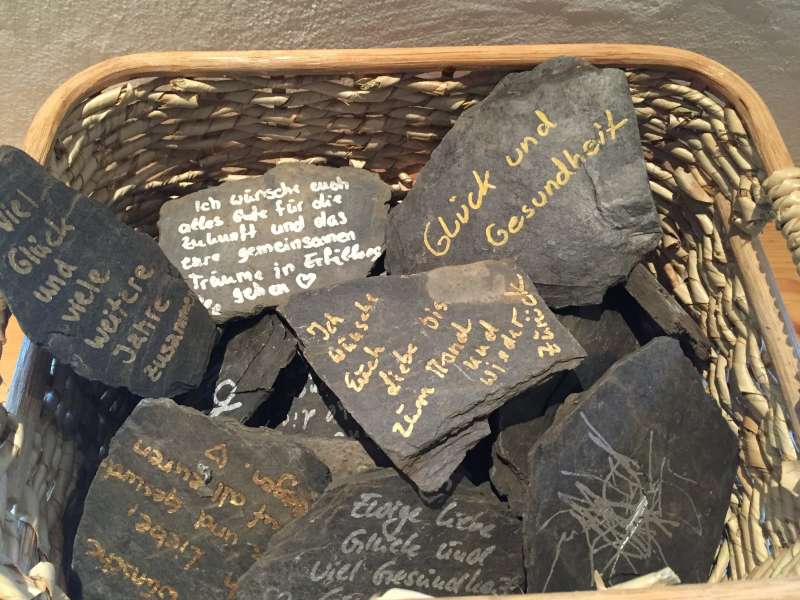 Viel
Glück
und
viele
weitere
Jahre
zusammen
Ich wünsche euch
alles Gute für die
Zukunft und das
eure gemeinsamen
Träume in Erfüllung
gehen ♡
Glück und
Gesundheit
Ich
wünsche
Euch
diebe bis
zum Mond
und
wieder
zurück
Ewige Liebe
Glück und
viel Gesundheit
wünsche
Liebe,
und Gesund
auf all euren